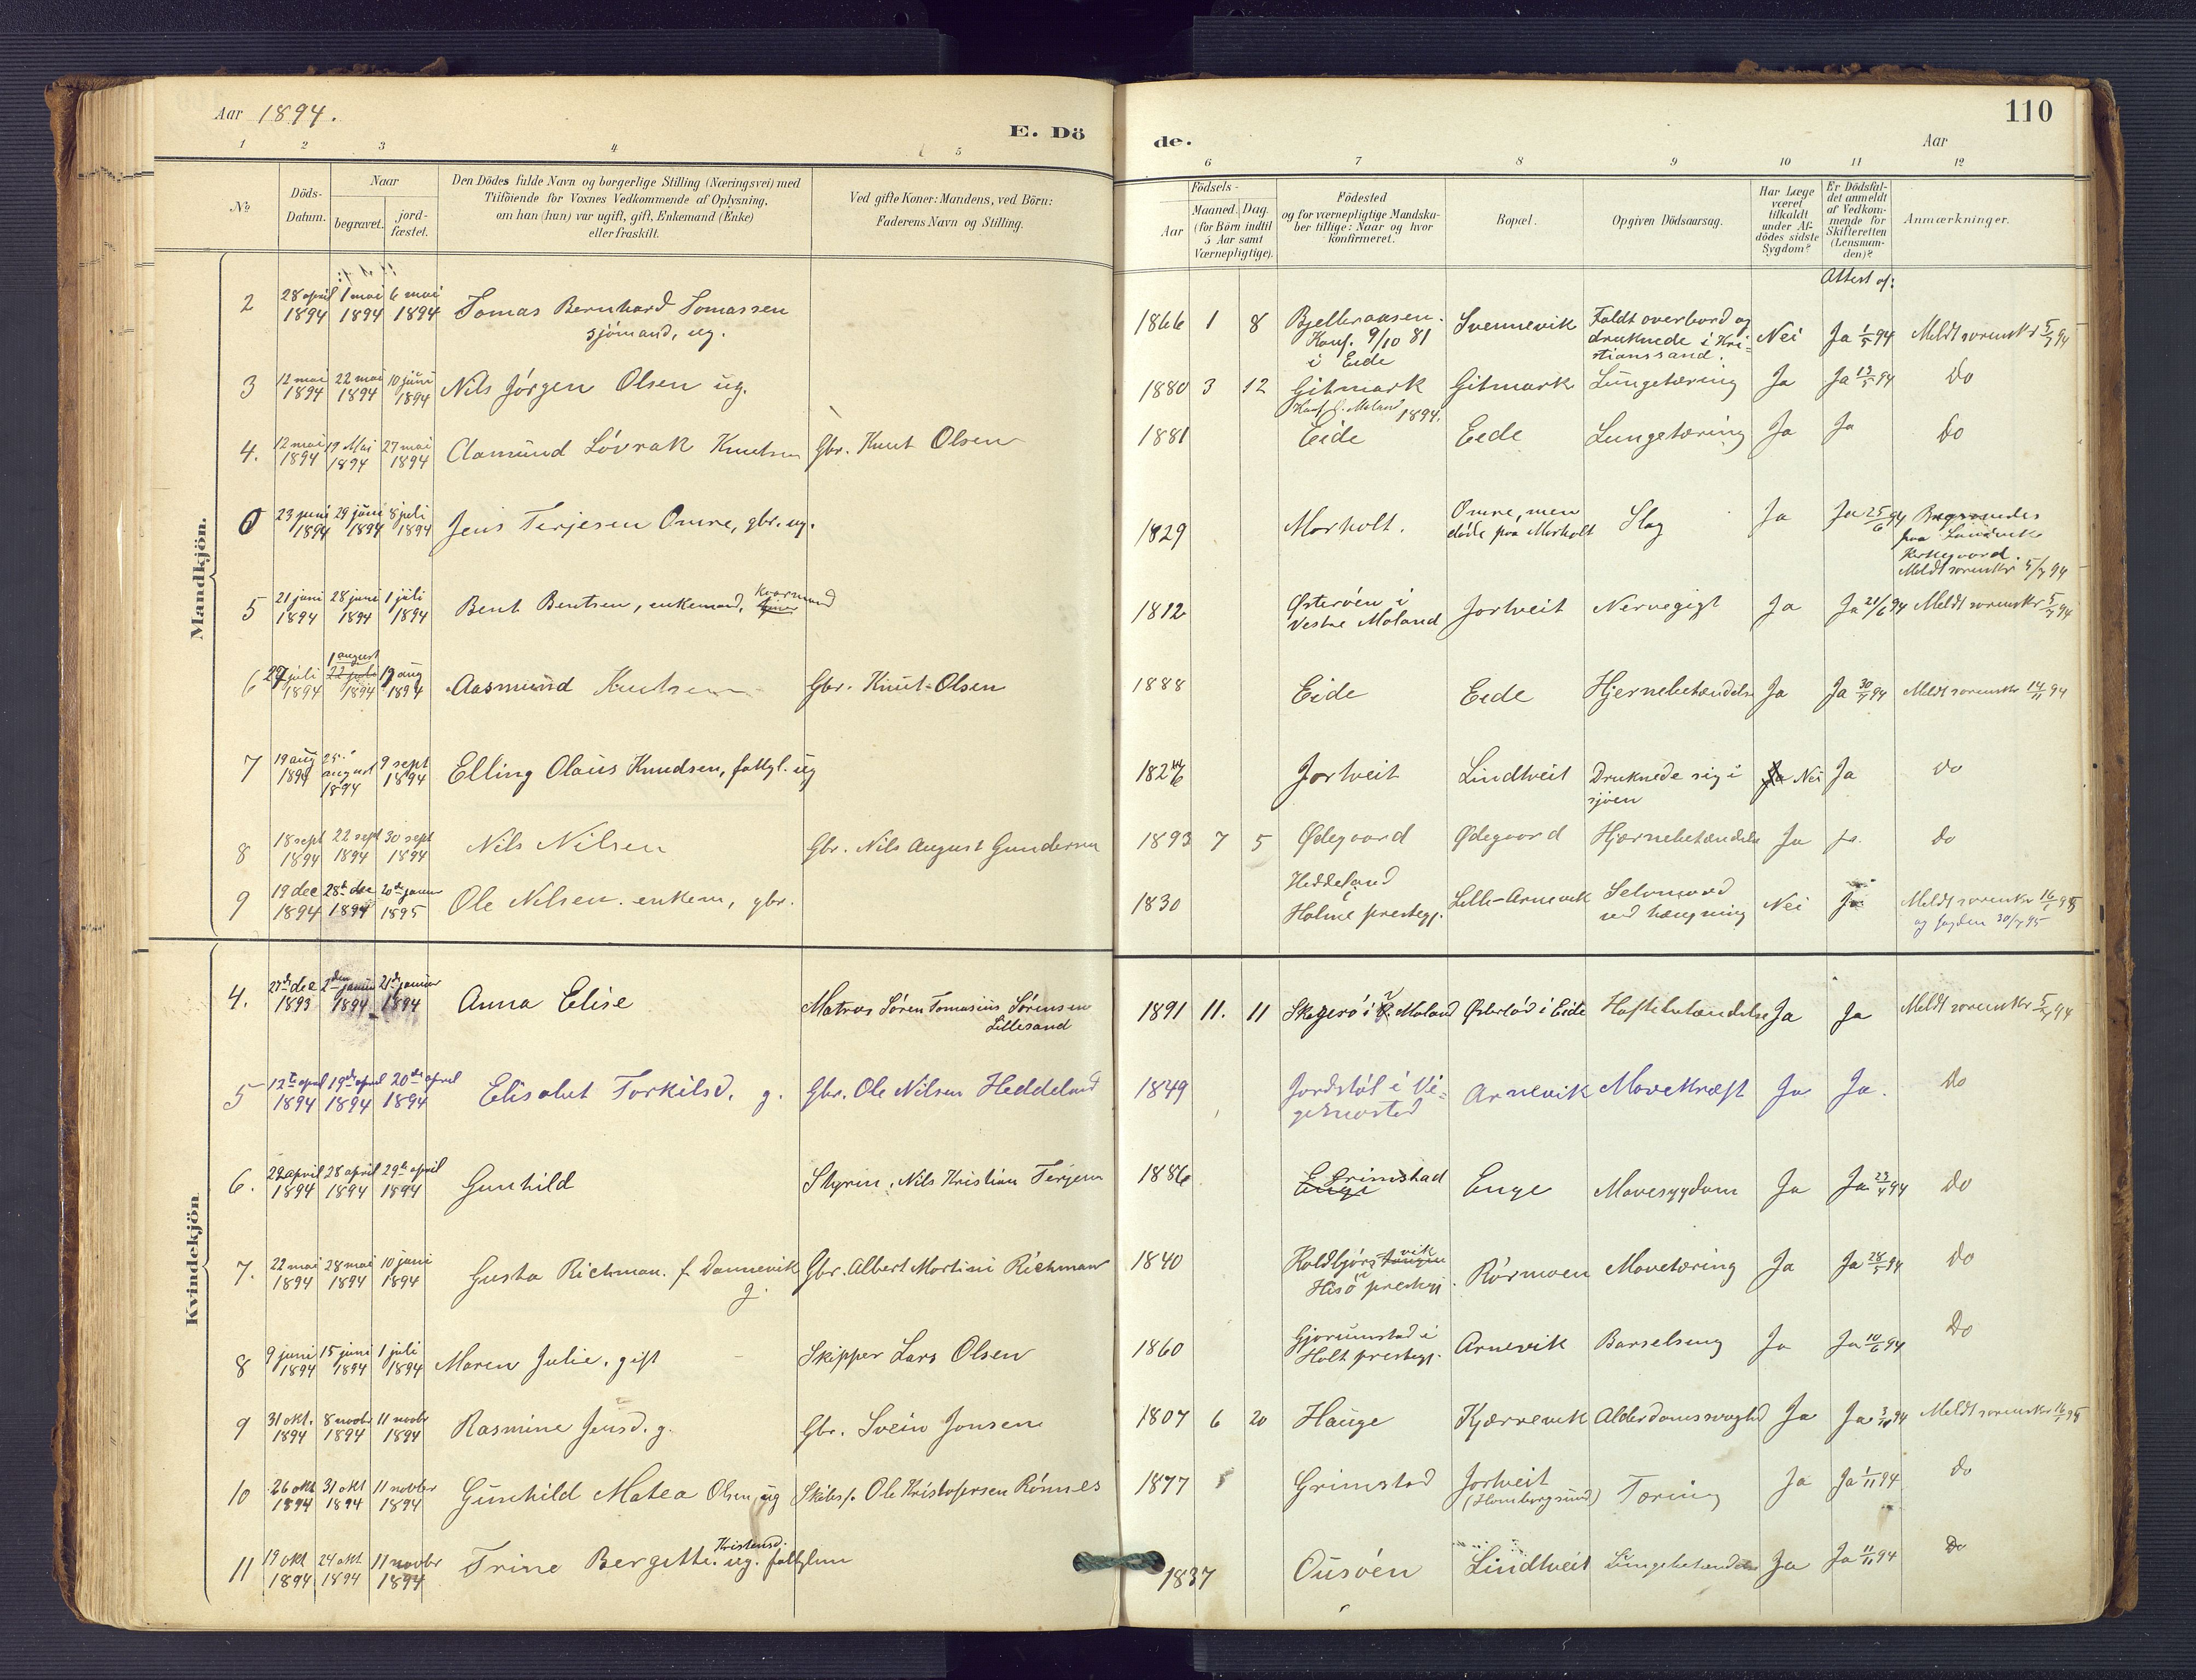 Aar 1894.
E. Dö de.
110
Aar
1 2 3 4 5 6 7 8 9 10 11 12
No
Döds-Datum.
Naar
begravet.
jord-fæstet.
Den Dödes fulde Navn og borgerlige Stilling (Næringsvei) med
Tilföiende for Voxnes Vedkommende af Oplysning,
om han (hun) var ugift, gift, Enkemand (Enke)
eller fraskilt.
Ved gifte Koner: Mandens, ved Börn:
Faderens Navn og Stilling.
Födsels-
Aar
Maaned. Dag.
(for Börn indtil
5 Aar samt
Værnepligtige).
Födested
og for værnepligtige Mandska-
ber tillige: Naar og hvor
konfirmeret.
Bopæl.
Opgiven Dödsaarsag.
Har Læge
været
tilkaldt
under Af-
dödes sidste
Sygdom?
Er Dödsfal-
det anmeldt
af Vedkom-
mende for
Skifteretten
(Lensman-
den)?
Anmærkninger.
Attest af:
Mandkjön.
2 28 april 1894 1 mai 1894 6 mai 1894 Tomas Bernhard Tomassen
sjömand, ug.
1866 1 8 Konf. 9/10 81
i Eide
Svennevik Faldt overbord og
druknede i Kri-
stianssand.
Nei Ja 1/5 94 Meldt sorenskr 5/7 94
3 12 mai 1894 22 mai 1894 10 juni 1894 Nils Jörgen Olsen ug.
1880 3 12 Gitmark
1894.
Gitmark Lungetæring Ja Ja 13/5 94 Do
4. 12 mai 1894 19 Mai 1894 27 mai 1894 Aamund Lövrak Knutsen Gbr. Knut Olsen
1881 Eide Eide Lungetæring Ja Ja Do
0 23 juni 1894 29 juni 1894 8 juli 1894 Jens Terjesen Omre, gbr. ug.
1829 Morholt. Omre, men
döde paa Morholt
Slag Ja Ja 25/6 94 Begravedes
paa Landvik
Kirkegaard.
Meldt sorenskr 5/7 94
5 21 juni 1894 28 juni 1894 1 juli 1894 Bent Bentsen, enkemand, Kaarmand
1812 Østeröen i
Vestre Moland
Jortveit Nervegigt Ja Ja 21/6 94 Meldt sorenskr 5/7 94
6 29 juli 1894 1 august 22 juli 1894 19 aug 1894 Aasmund Knutsen Gbr. Knut Olsen
1888 Eide Eide Hjernebetændelse Ja Ja 30/7 94 Meldt sorenskr 14/11 94
7 19 aug 1894 25 august 1894 9 sept 1894 Elling Olaus Knudsen, fattgl. ug
1826 Jortveit Lindtveit Druknede sig i
sjöen
Ja Nei Ja Do
8 18 sept 1894 22 sept 1894 30 sept 1894 Nils Nilsen Gbr. Nils August Gundersen
1893 7 5 Ødegaard Ødegaard Hjernebetændelse Ja ja Do
9 19 dec 1894 28de dec 1894 20de januar 1895 Ole Nilsen. enkem, gbr.
1830 Heddeland
Holme prestegj.
Lille-Arnevik Selvmord
ved hængning
Nei Ja Meldt sorenskr 16/1 95
og fogden 30/7 95
Kvindekjön
4. 27de dec 1893 2den januar 1894 21de januar 1894 Anna Elise Matros Sören Tomasius Sörensen
Lillesand
1891 11. 11 Skogerö i V. Moland Østerlöd i Eide Hoftebetændelse Ja Ja Meldt sorenskr 5/7 94
5 12te april 1894 19de april 1894 20de april 1894 Elisabet Torkilsd. g. Gbr. Ole Nilsen Heddeland
1849 Jordstöl i Vi-
gesnested
Arnevik Mavekræft Ja Ja. Do
6. 22 april 1894 28 april 1894 29de april 1894 Gunhild Styrm. Nils Kristian Terjesen
1886 Enge Grimstad Enge Mavesygdom Ja Ja 23/4 94 Do
7. 22 mai 1894 28 mai 1894 10 juni 1894 Gusta Richman. f. Dannevik
g.
Gbr. Albert Martini Richman
1840 Koldbjörsvik
Hisö prestegj.
Rörmoen Mavetæring Ja Ja 28/5 94 Do
8 9 juni 1894 15 juni 1894 1 juli 1894 Maren Julie, gift Skipper Lars Olsen
1860 Gjerumstad i
Holt prestegj.
Arnevik Barselseng Ja Ja 10/6 94 Do
9 31 okt. 1894 8 novbr 1894 11 novbr 1894 Rasmine Jensd. g. Gbr. Svein Jonsen
1807 6 20 Hauge Kjærrevik Alderdomssvaghed Ja Ja 3/11 94 Meldt sorenskr 16/1 95
10 26 okt 1894 31 okt 1894 11 novber 1894 Gunhild Matea Olsen, ug Skibsf. Ole Kristofersen Rönnes
1877 Grimstad Jortveit
(Homborgsund)
Tæring Ja Ja 1/11 94 Do
11 19 okt 1894 24 okt 1894 11 novbr 1894 Trine Bergitte Kristensd. ug. fattiglem
1837 Ousöen Lindtveit Lungebetændelse Ja Ja 11/11 94 Do